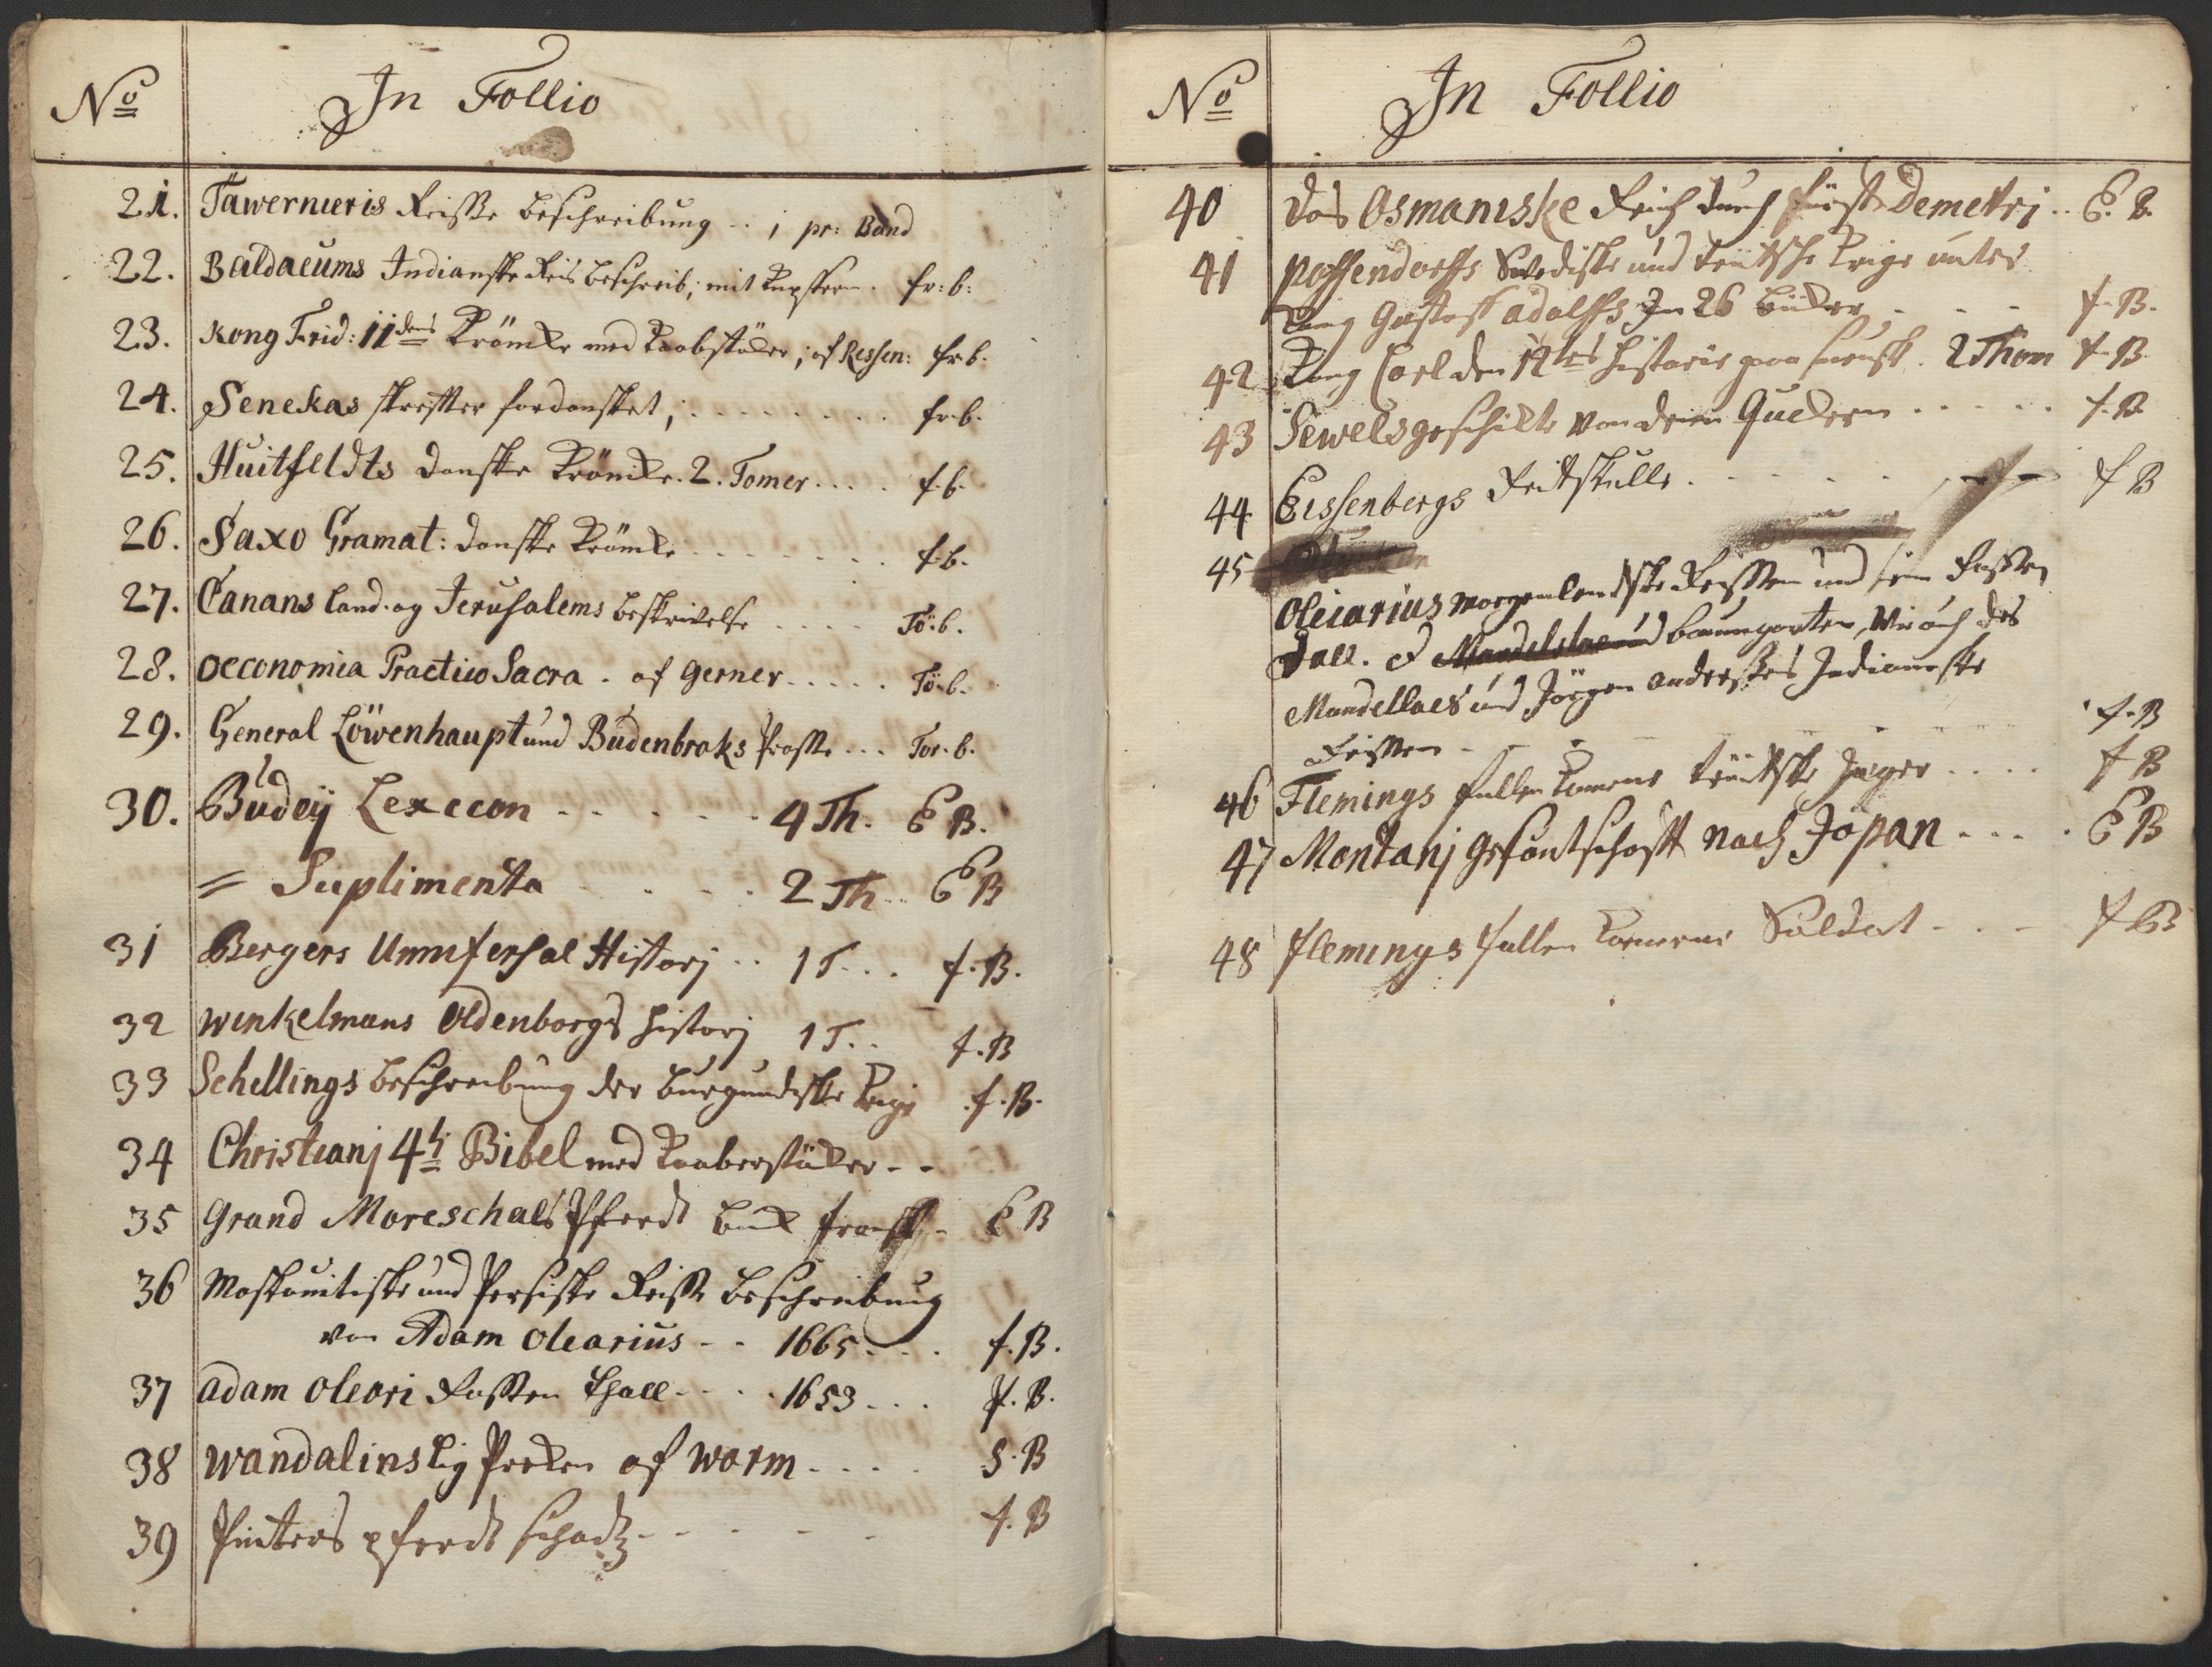 No In Follio
21. Tawernieris Reisse beschreibung .. j pr: Band
22. Baldaeums Indianske Reis beschreib; mit Kupffern. fr: b:
23. Kong Frid: IIdens Krönike med Kaabstüker; af Ressen: fr: b.
24. Senekas skreffter fordansket; . . . . . . . fr: b.
25. Huitfeldts Danske Krönike. 2. Tomer . . . . f. b.
26. Saxo Gramat: Danske Krönike . . . . . . f. b.
27. Canans Land. og Jerusalems beskrivelse . . . . Tö: b.
28. Oeconomia Practico Sacra. af Gerner . . . . . Tö. b.
29. General Löwenhaupt und Budenbroks . . . Tor. b.
30. Budeÿ Lexecon . . . . . 4 Th. E B.
= Suplimenta . . . . 2 Th . . E B
31 Bergers Unnifersal Historj . . 1 T . . . f. B.
32 Winkelmans Oldenborgs Historj 1 T . . f. B
33 Schellings beschreibung der burgundiske Krige f. B.
34 Christianj 4ti Bibel med Kaaberstüker - -
35 Grand Mareschals Pferdt buk fransk - E B
36 Moskauitiske und Persiske Reisse beschreibung
von Adam Olearius - - 1665 . . . f. B.
37 Adam Oleari Rossen Thall - - . . 1653 . . . P. B.
38 Wandalins Lig Preken af Worm . . . . . S. B
39 Pinters pferdt schatz - - - - - f. B
No In Follio
40 Das Osmaniske Reich durch Fürst Demetrj . . E. B.
41 Poffendorffs Swediske und teutsche Krige unter
Kong Gustaff Adolffs In 26 büker . - - f. B.
42 Kong Carl den 12tes Historie paa suensk. 2 Thom f. B
43 Sewels geschikte von denen Quekern . . . . . f. B
44 Eissenbergs . . . . . f B
45
Oleiarius morgenlendske Reissen und sein Rossen
Dall. baumgarten, Wie auch des
Mandellaes und Jörgen Anderssens Indianeske
Reissen - - - - - f. B
46 Flemings fullenkomene teutske Jeger . . . . f B
47 Montanj gesantschafft nach Japan . . . . . E B
48 Flemings fullen komene Soldat - . - f B